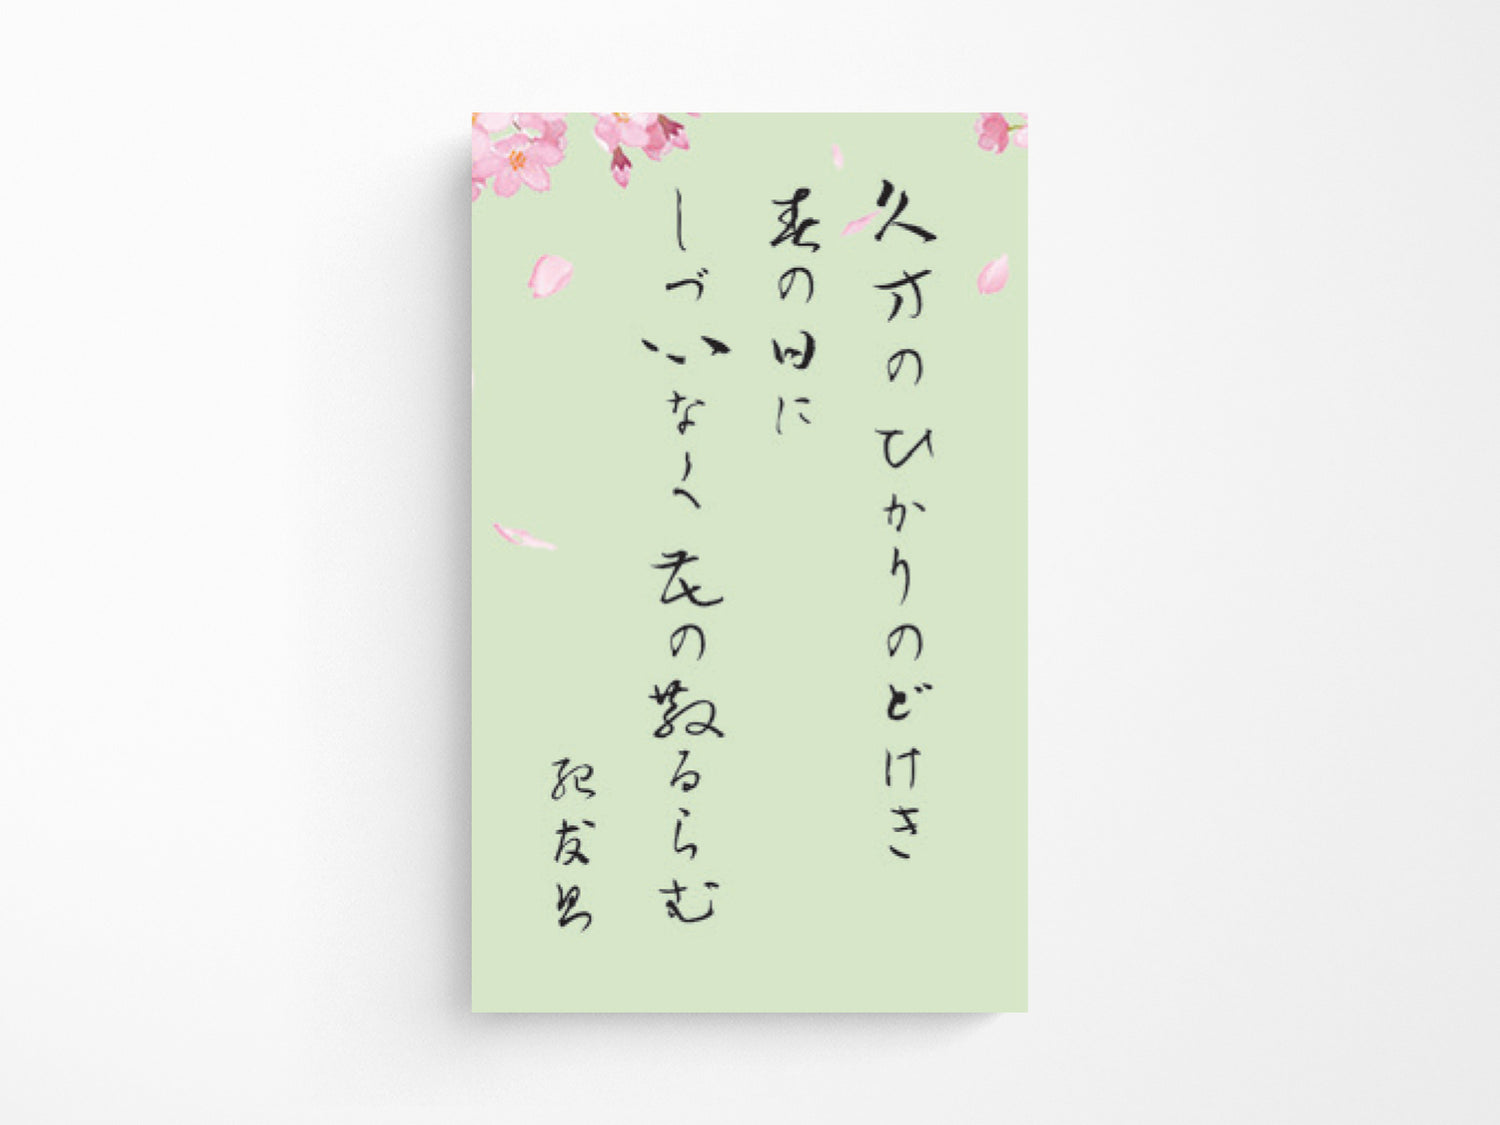 久方のひかりのどけき
春の日に
しづ心なく花の散るらむ
紀友則